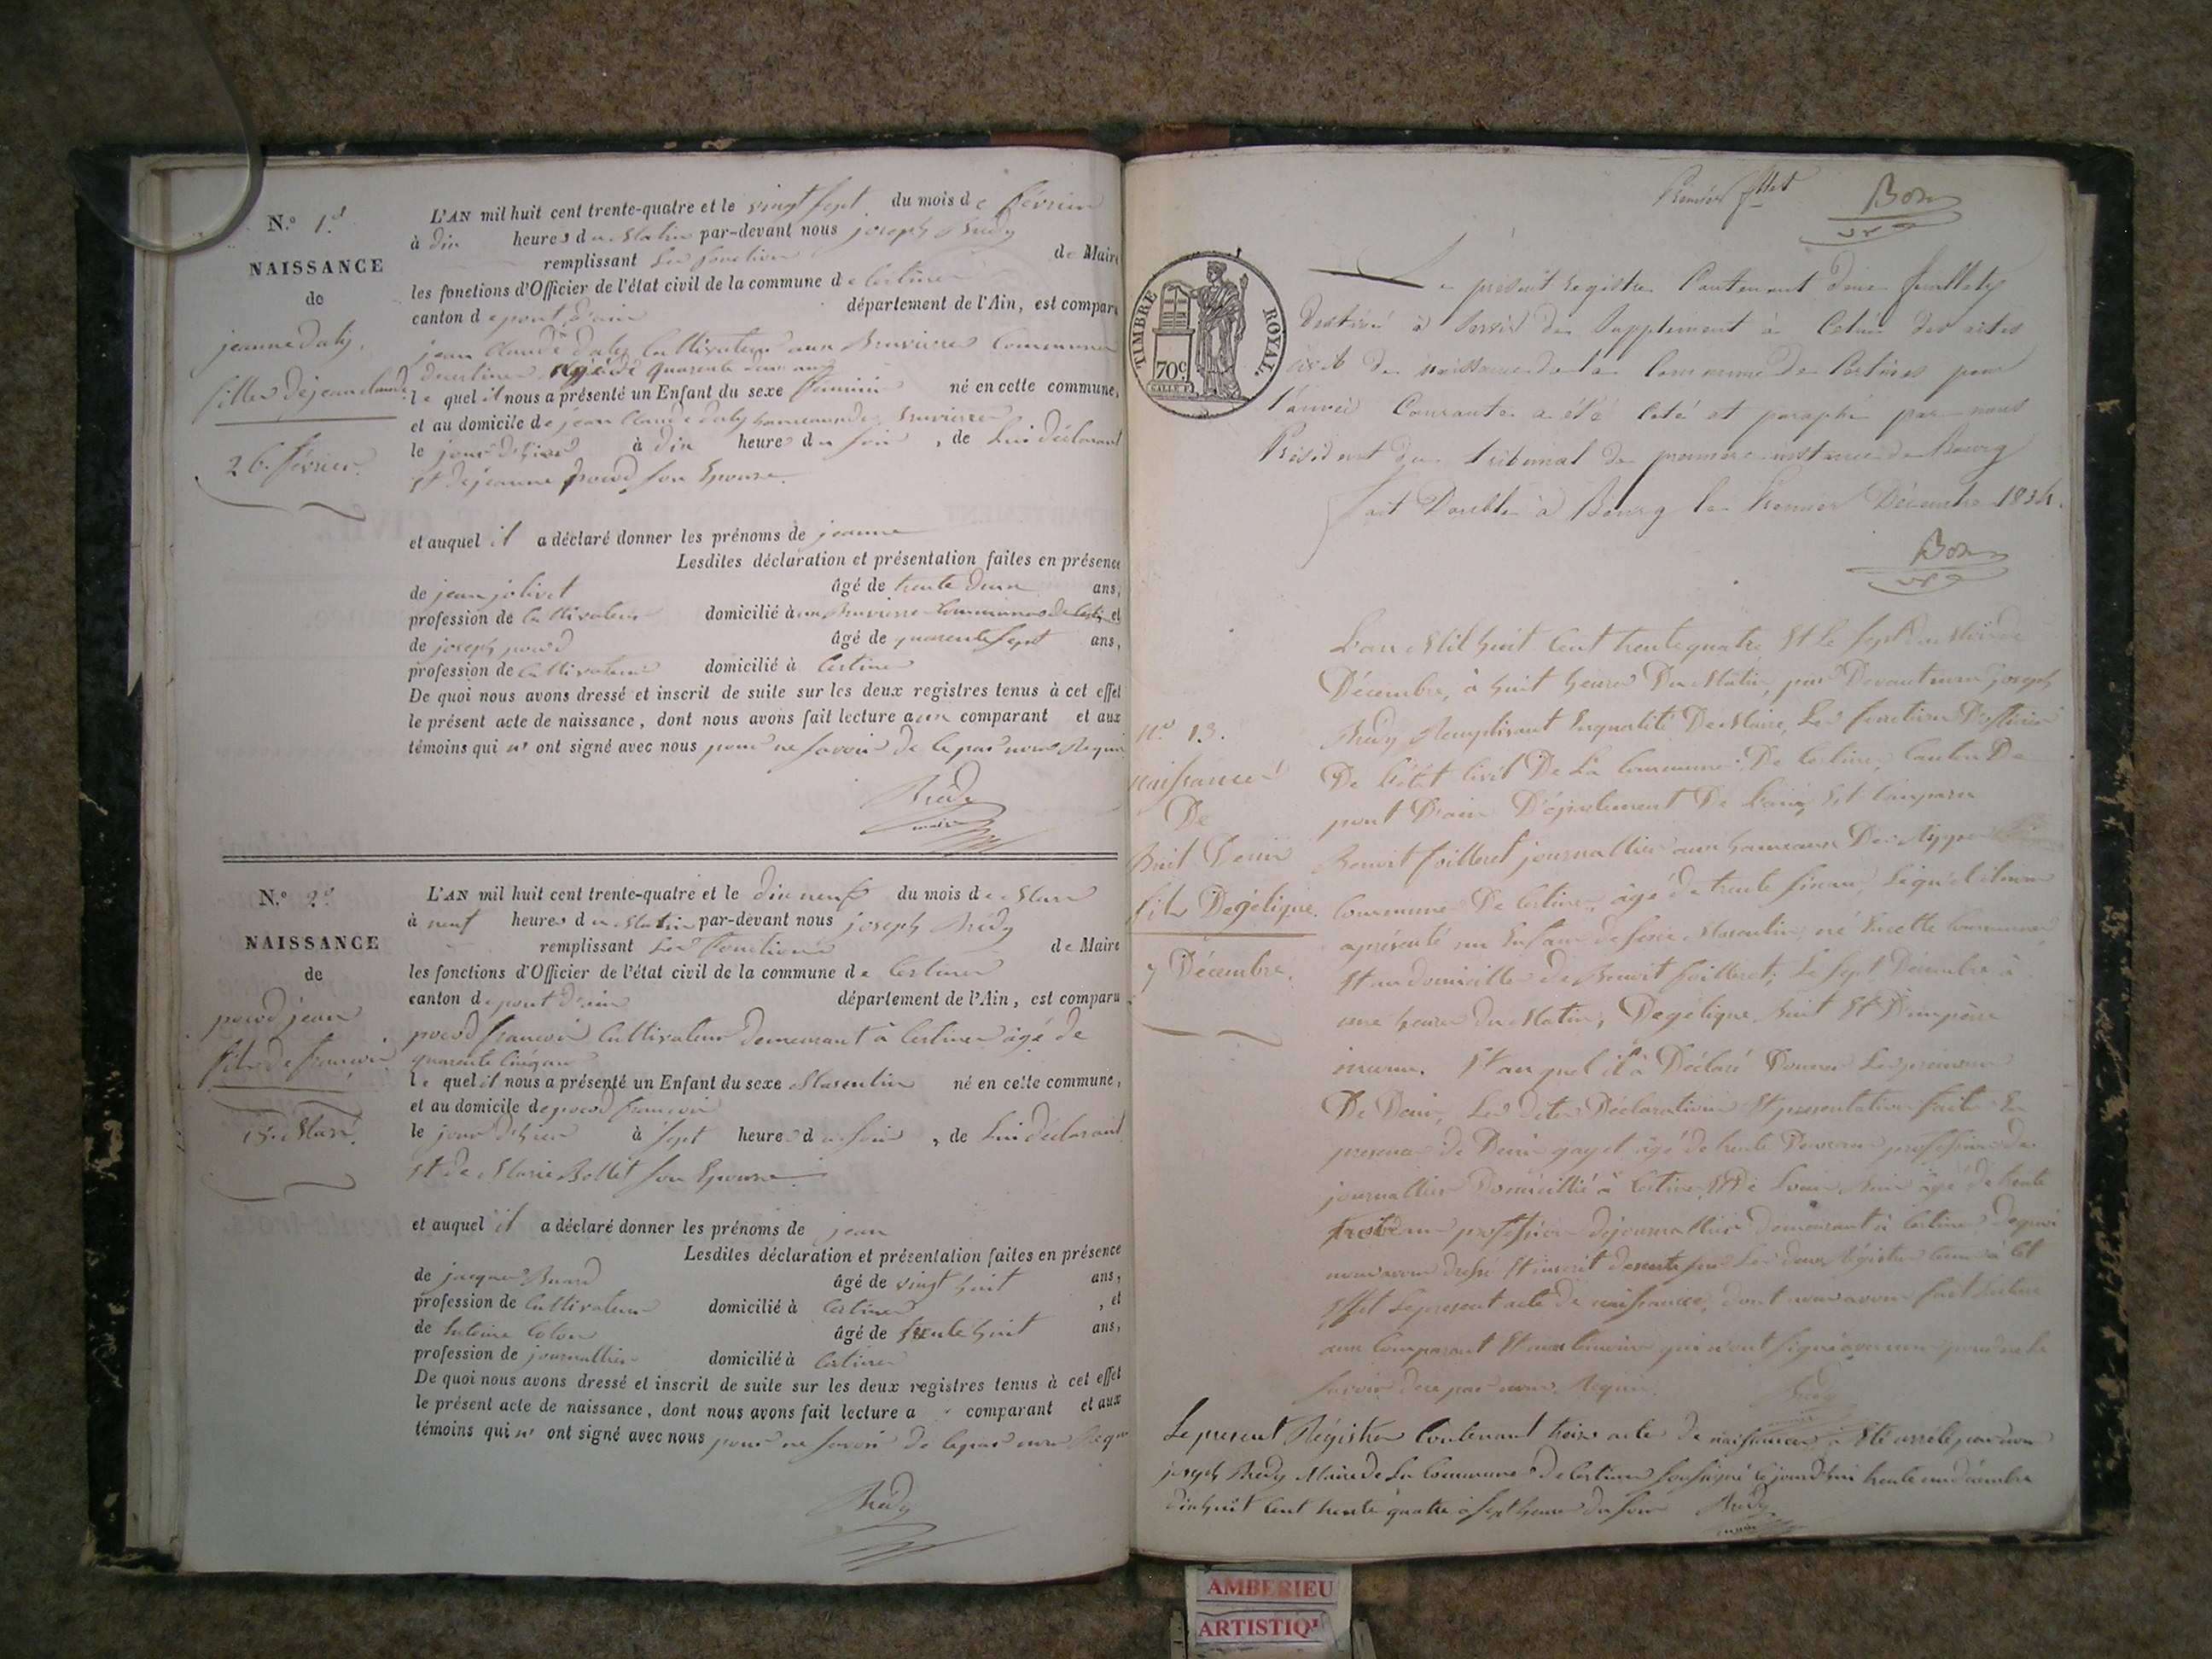 N.º 1.er
NAISSANCE
de
jeanne daly,
fille de jean claude
26. février.
L'AN mil huit cent trente-quatre et le vingt sept du mois de février
à dix heures du Matin par-devant nous joseph Brédy
remplissant Les fonctions de Maire
les fonctions d'Officier de l'état civil de la commune de Certines
canton de pont d'ain département de l'Ain, est comparu
jean Claude daly Cultivateur aux Bruvieres Commune
de certines âgé de quarente deux ans
le quel il nous a présenté un Enfant du sexe féminin né en cette commune,
et au domicile de jean Claude daly hameau des Bruvieres
le jour d'hier à dix heures du soir, de Lui déclarant
Et de jeanne son Epouse.
et auquel il a déclaré donner les prénoms de jeanne
Lesdites déclaration et présentation faites en présence
de jean jolivet âgé de trente deux ans,
profession de Cultivateur domicilié à aux Bruvieres Commune de et
de joseph âgé de quarente sept ans,
profession de Cultivateur domicilié à Certines
De quoi nous avons dressé et inscrit de suite sur les deux registres tenus à cet effet
le présent acte de naissance, dont nous avons fait lecture aux comparant et aux
témoins qui n' ont signé avec nous pour ne savoir de ce par nous Requis
Brédy
maire
N.º 2.e
NAISSANCE
de
jean
fils de francois
Mars
L'AN mil huit cent trente-quatre et le dix neuf du mois de Mars
à neuf heures du Matin par-devant nous joseph Brédy
remplissant Les fonctions de Maire
les fonctions d'Officier de l'état civil de la commune de Certines
canton de pont d'ain département de l'Ain, est comparu
francois Cultivateur demeurant à Certines âgé de
quarente cinq ans
le quel il nous a présenté un Enfant du sexe Masculin né en cette commune,
et au domicile de francois
le jour d'hier à sept heures du soir, de Lui déclarant
Et de Marie Bollet son Epouse
et auquel il a déclaré donner les prénoms de jean
Lesdites déclaration et présentation faites en présence
de jacques Buard âgé de vingt huit ans,
profession de Cultivateur domicilié à Certines, et
de Antoine Coton âgé de trente huit ans,
profession de journallier domicilié à Certines
De quoi nous avons dressé et inscrit de suite sur les deux registres tenus à cet effet
le présent acte de naissance, dont nous avons fait lecture a comparant et aux
témoins qui n' ont signé avec nous pour ne savoir de ce par nous Requis
Brédy
Premier f.llet
TIMBRE ROYAL.
70c
Le présent registre Contenant deux feuillets
destiné à servir de Supplement à Celui des actes
civils de naissance de la Commune de Certines pour
l'année Courante a été coté et paraphé par nous
Président du tribunal de première instance de Bourg
fait Double à Bourg le Premier Décembre 1834.
N.º 13.
naissance
De
Denis
fils Degélique.
7 Décembre.
L'an Mil huit Cent trente quatre Et Le sept du Mois de
Décembre, à huit heures Du Matin, par Devant nous joseph
Brédy Remplissant En qualité De Maire, Les fonctions D'officier
De l'état Civil De La Commune De Certines, Canton De
pont D'ain Département De l'ain, Est Comparu
Benoit foilleret journallier aux hameaux Des
Commune De Certines, âgé de trente ans, Lequel il nous
a présenté un Enfant de sexe Masculin né En cette Commune
Et au domicille de Benoit foilleret, Le sept Décembre à
une heure du Matin, Degélique Et D'un père
inconnu. Et auquel il à Déclaré Donner Les prenoms
De Denis, Les dites Déclaration Et presentation faite En
presence de Denis gayet âgé de trente ans profession de
journallier Domicillié à Certines Et De Louis âgé de trente
ans profession de journallier demeurant à Certines De quoi
nous avons dressé Et inscrit de suite sur Les deux Régistres tenus à Cet
Effet Le present acte de naissance, dont nous avons fait Lecture
aux Comparant Et aux temoins qui n'ont signé avec nous pour ne le
savoir de ce par nous Requis.
Brédy
Le present Régistre Contenant treize actes de naissances a Eté arrêté par nous
joseph Brédy Maire de La Commune de Certines soussigné Ce jourd'hui trente un décembre
dix huit Cent trente quatre à sept heures du soir Brédy
maire
AMBERIEU
ARTISTIQU